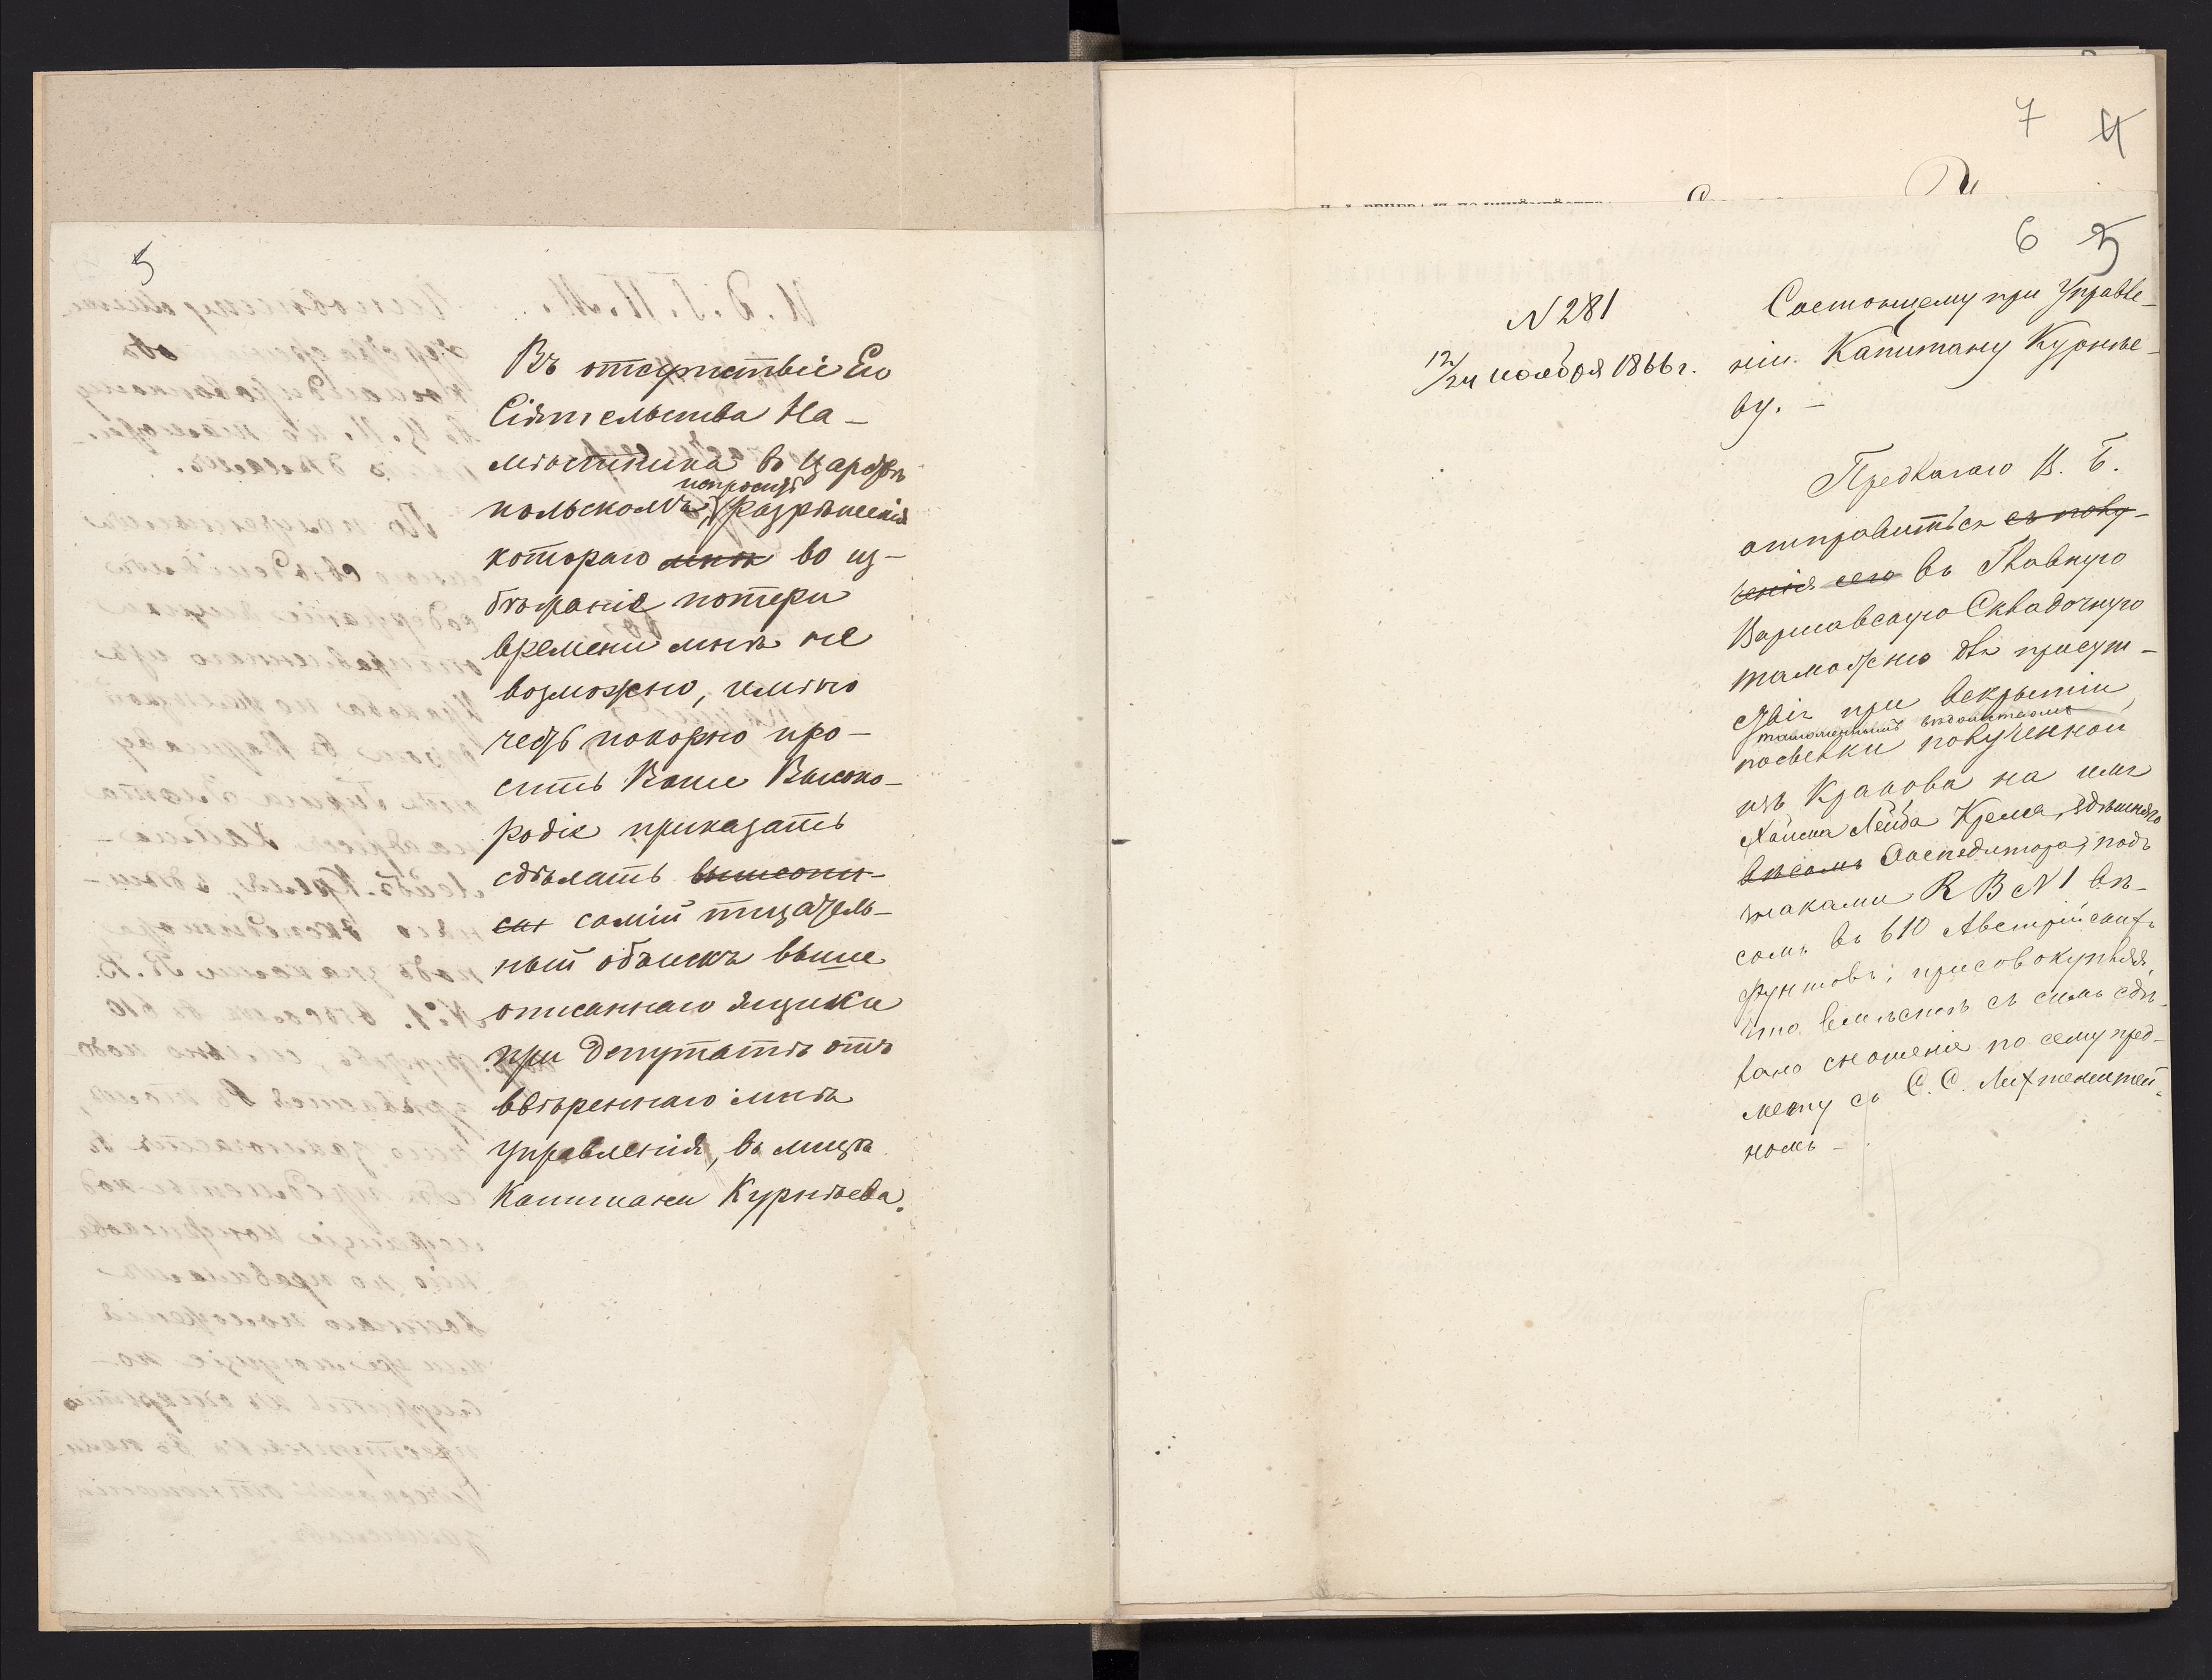 5
Въ отсутствіе Его
Сіятельства На-
мѣстника въ Царствѣ
испросить
польскомъ, разрѣшенія
котораго мнѣ во из-
бѣжаніе потери
времени мнѣ не
возможно, имѣю
честь покорно про-
сить Ваше Высоко-
родіе приказать
сдѣлать вышеопи-
сан самый тщатель-
ный обыскъ выше
описаннаго ящика
при Депутатѣ отъ
ввѣреннаго мнѣ
управленія, въ лицѣ
Капитана Курнѣева.
7 4
6 5
N 281
12/24 ноября 1866 г.
Состоящему при Управле-
ніи. Капитану Курнѣе-
ву. —
Предлагаю В. Б.
отправиться съ полу-
ченія сего въ Главную
Варшавскую Складочную
таможню для присут-
ствія при вскрытіи
таможеннымъ
посылки полученной
изъ Кракова на имя
Хаима Лейба Креля, здѣшняго
вѣсомъ Экспедитора, подъ
знаками R B N 1 вѣ-
сомъ въ 610 Австрійскихъ
фунтовъ; присовокупляя,
что вмѣстѣ съ симъ сдѣ-
лано сношеніе по сему пред-
мету съ С. С. Лихтенштей-
номъ —